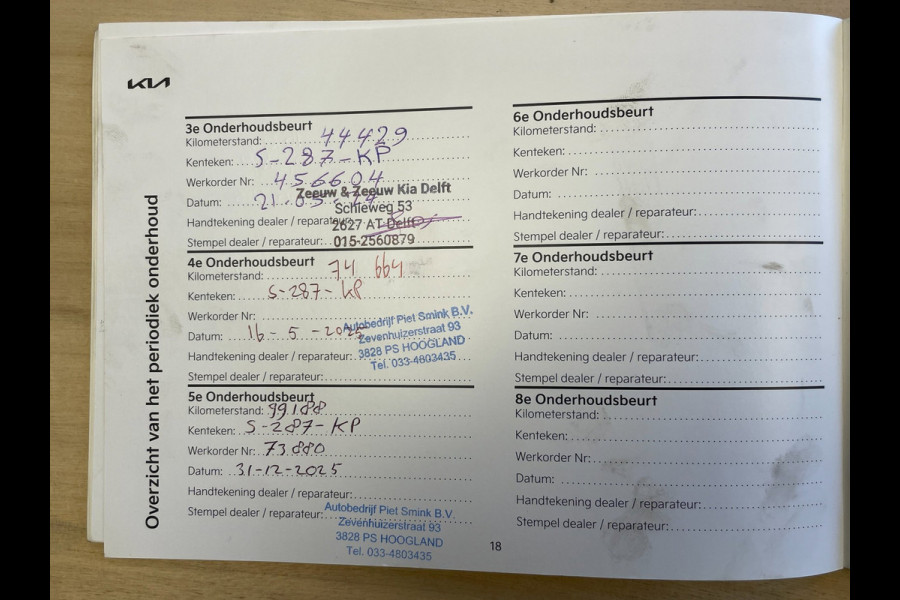 KIA
Overzicht van het periodiek onderhoud
3e Onderhoudsbeurt
Kilometerstand: 44429
Kenteken: S-287-KP
Werkorder Nr: 456604
Datum: 21.03.
Zeeuw & Zeeuw Kia Delft
Schieweg 53
Handtekening dealer / reparateur:
2627 AT Delft
Stempel dealer / reparateur:
015-2560879
4e Onderhoudsbeurt
Kilometerstand: 74 664
Kenteken: S-287-KP
Werkorder Nr:
Datum: 16-5-2025
Autobedrijf Piet Smink B.V.
Zevenhuizerstraat 93
3828 PS HOOGLAND
Tel. 033-4803435
Handtekening dealer / reparateur:
Stempel dealer / reparateur:
5e Onderhoudsbeurt
Kilometerstand: 99188
Kenteken: S-287-KP
Werkorder Nr: 73880
Datum: 31-12-2025
Handtekening dealer / reparateur:
Stempel dealer / reparateur:
Autobedrijf Piet Smink B.V.
Zevenhuizerstraat 93
3828 PS HOOGLAND
Tel. 033-4803435
6e Onderhoudsbeurt
Kilometerstand:
Kenteken:
Werkorder Nr:
Datum:
Handtekening dealer / reparateur:
Stempel dealer / reparateur:
7e Onderhoudsbeurt
Kilometerstand:
Kenteken:
Werkorder Nr:
Datum:
Handtekening dealer / reparateur:
Stempel dealer / reparateur:
8e Onderhoudsbeurt
Kilometerstand:
Kenteken:
Werkorder Nr:
Datum:
Handtekening dealer / reparateur:
Stempel dealer / reparateur:
18